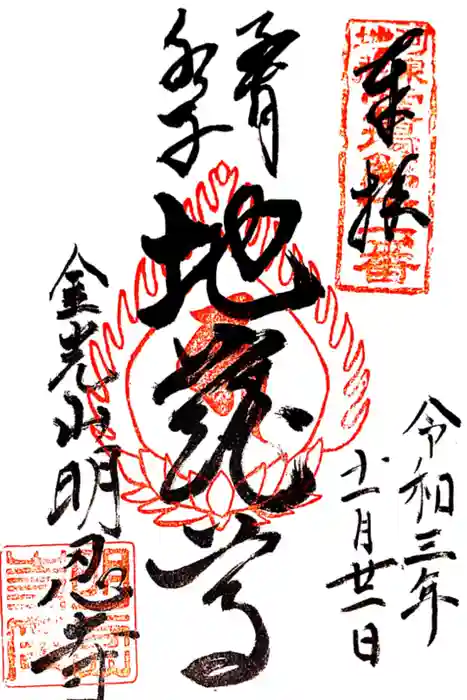 奉拝
令和三年
十一月廿一日
子育
水子
地蔵尊
金光山明忍寺